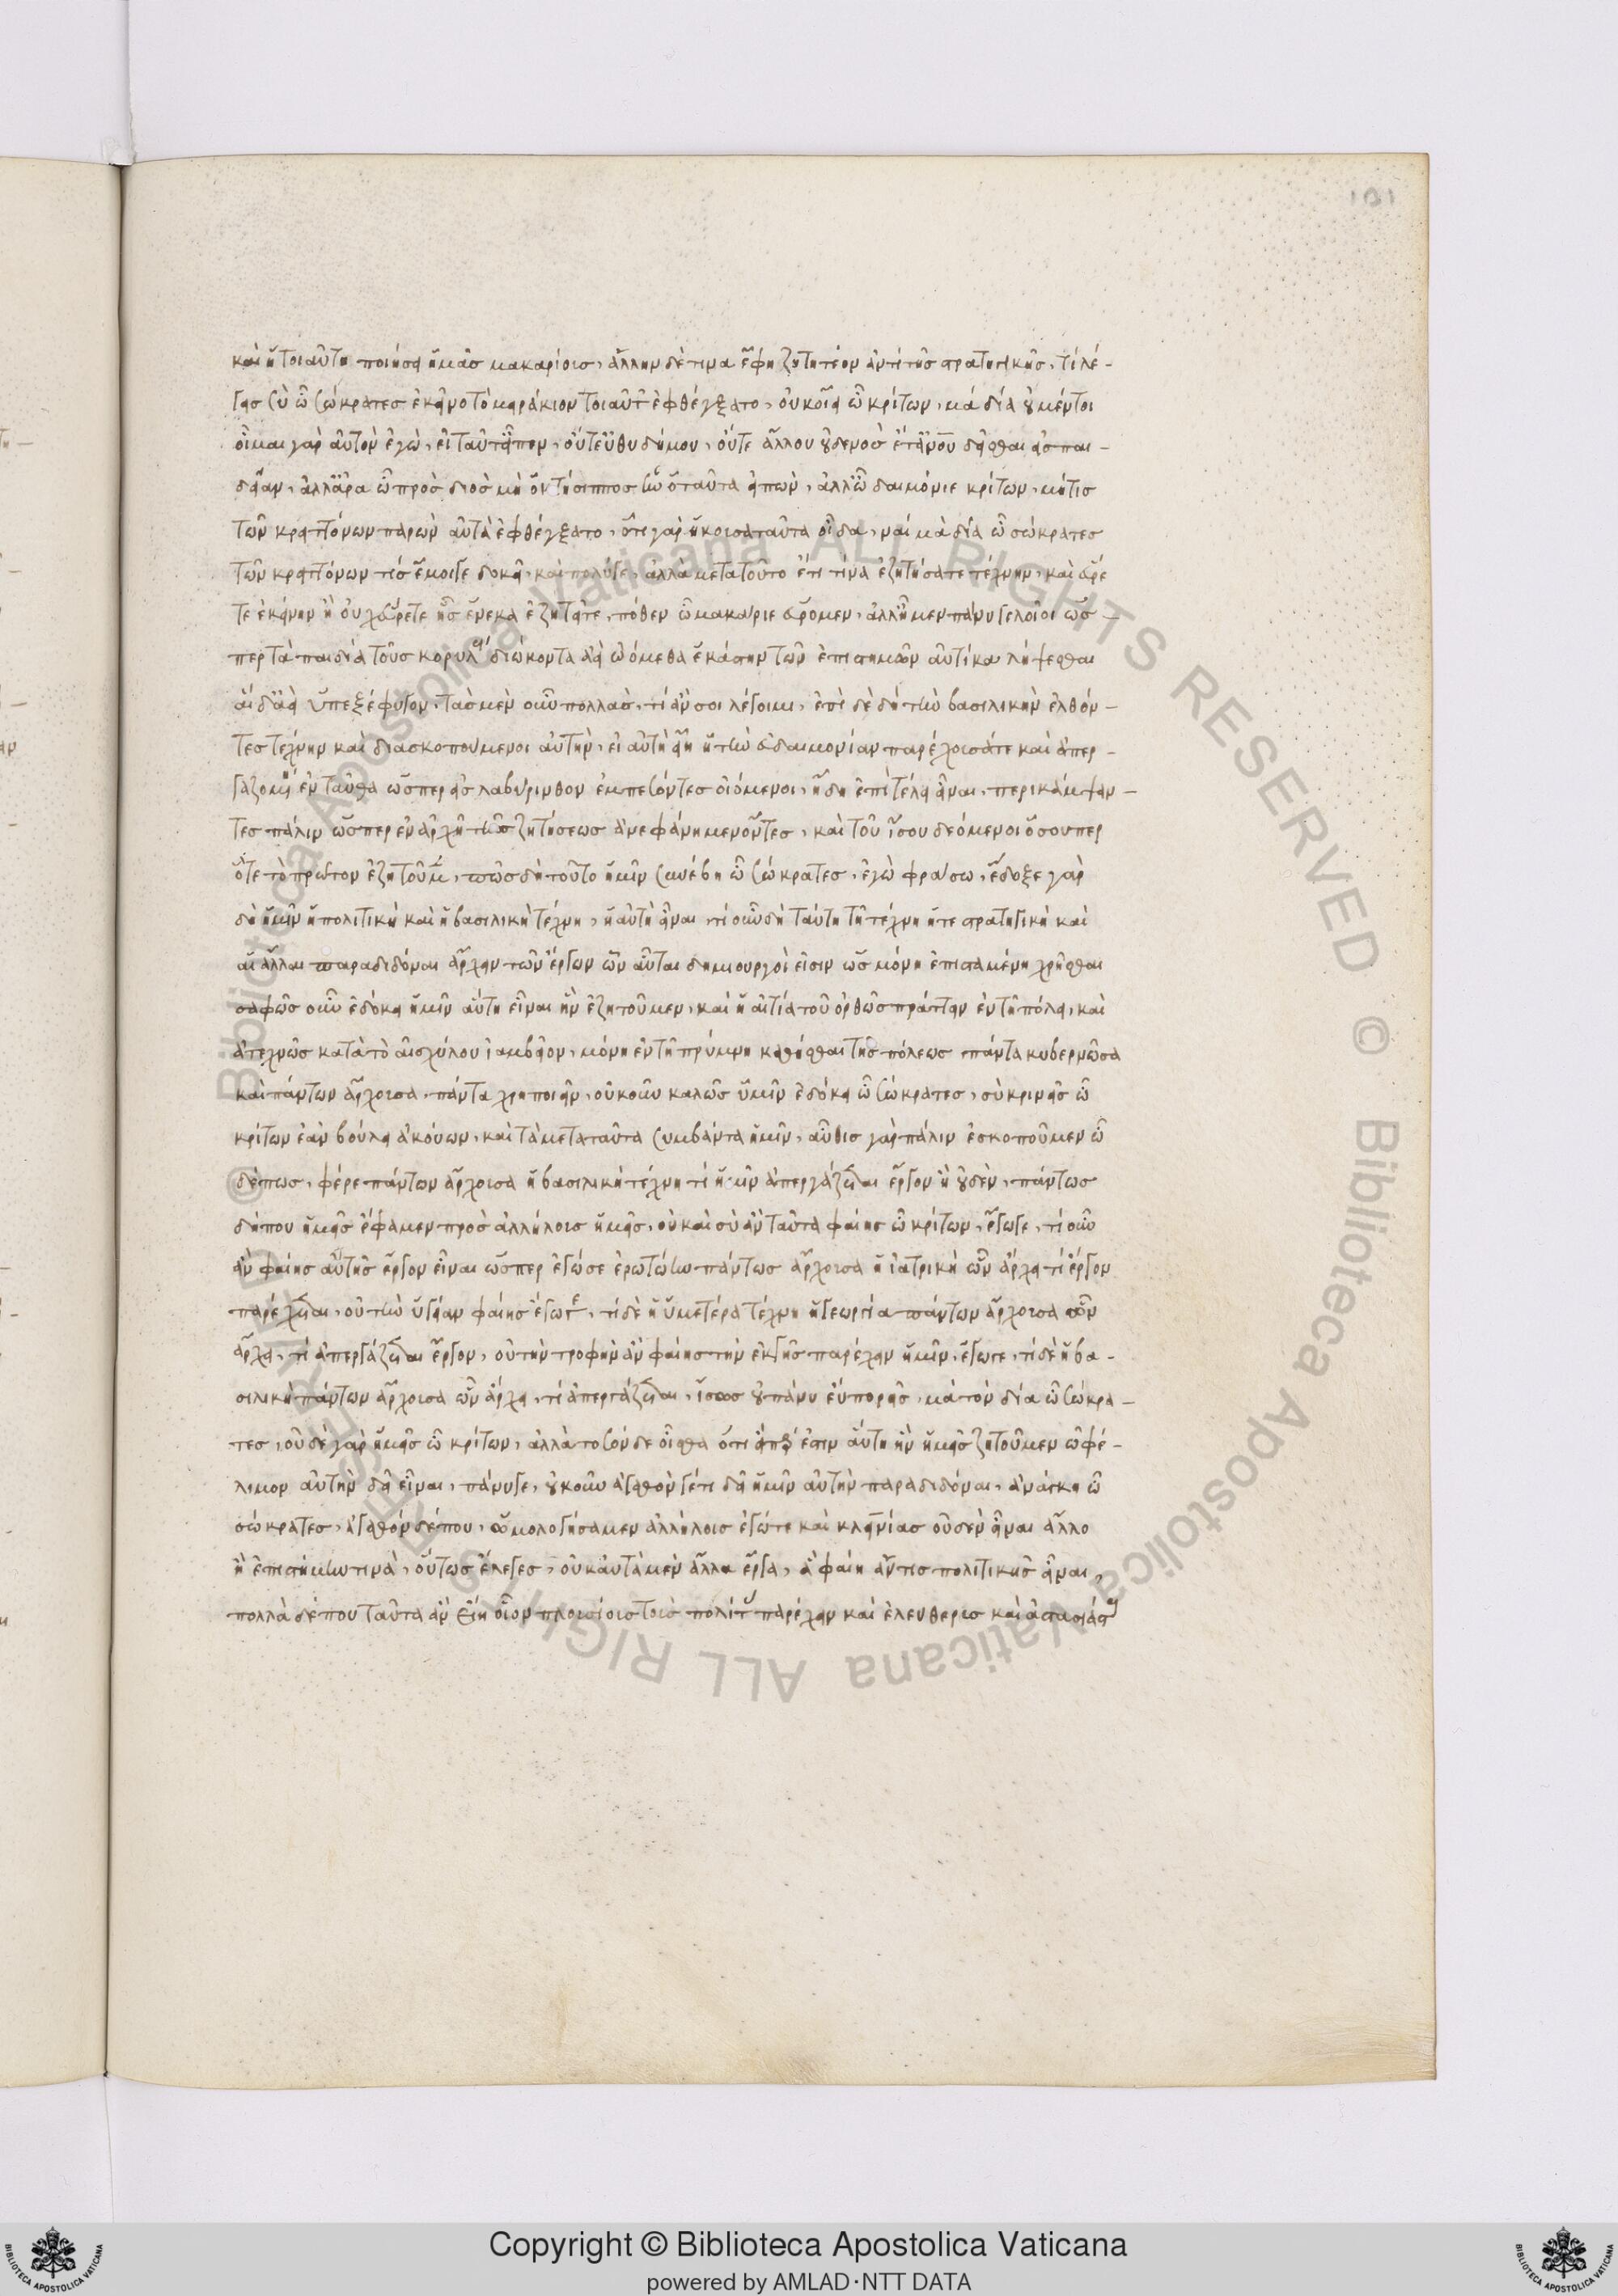 101
καὶ ἡ τοιαύτη ποιήσει ἡμᾶς μακαρίους, ἄλλην δέ τινα ἔφη ζητητέον ἀντὶ τῆς στρατηγικῆς, τί λέ-
γεις σὺ ὦ σώκρατες ἐκεῖνο τὸ μειράκιον τοιαῦτ' ἐφθέγξατο, οὐκ οἴει ὦ κρίτων, μὰ δία οὐ μέντοι
οἶμαι γὰρ αὐτὸν ἐγὼ, εἰ ταῦτ' εἶπεν, οὔτ' εὐθυδήμου, οὔτε ἄλλου οὐδενὸς ἔτ' ἂν δεῖσθαι εἰς παι-
δείαν, ἀλλ' ἄρα ὦ πρὸς διὸς μὴ ὁ κτήσιππος ἦν ὁ ταῦτα εἰπὼν, ἀλλ' ὦ δαιμόνιε κρίτων, μή τις
τῶν κρειττόνων παρὼν αὐτὰ ἐφθέγξατο, ὅτι γὰρ ἤκουσα ταῦτα οἶδα, ναὶ μὰ δία ὦ σώκρατες
τῶν κρειττόνων τίς ἔμοιγε δοκεῖ, καὶ πολύγε, ἀλλὰ μετὰ τοῦτο ἔτι τίνα ἐζητήσατε τέχνην, καὶ εὕρε
τε ἐκείνην ἢ οὐχ εὕρετε ἧς ἕνεκα ἐζητεῖτε, πόθεν ὦ μακάριε εὕρομεν, ἀλλ' ἦμεν πάνυ γελοῖοι ὥσ-
περ τὰ παιδία τοὺς κορύδους διώκοντα ἀεὶ ᾠόμεθα ἑκάστην τῶν ἐπιστημῶν αὐτίκα λήψεσθαι
αἱ δ' ἀεὶ ὑπεξέφυγον, τὰς μὲν οὖν πολλὰς, τί ἄν σοι λέγοιμι, ἐπὶ δὲ δὴ τὴν βασιλικὴν ἐλθόν-
τες τέχνην καὶ διασκοπούμενοι αὐτὴν, εἰ αὐτὴ εἴη ἡ τὴν εὐδαιμονίαν παρέχουσά τε καὶ ἀπερ-
γαζομένη ἐνταῦθα ὥσπερ εἰς λαβύρινθον ἐμπεσόντες οἰόμενοι, ἤδη ἐπὶ τέλει εἶναι, περικάμψαν-
τες πάλιν ὥσπερ ἐν ἀρχῇ τῆς ζητήσεως ἀνεφάνημεν ὄντες, καὶ τοῦ ἴσου δεόμενοι ὅσουπερ
ὅτε τὸ πρῶτον ἐζητοῦμεν, πῶς δὴ τοῦτο ἡμῖν συνέβη ὦ σώκρατες, ἐγὼ φράσω, ἔδοξε γὰρ
δὴ ἡμῖν ἡ πολιτικὴ καὶ ἡ βασιλικὴ τέχνη, ἡ αὐτὴ εἶναι, τί οὖν δὴ ταύτῃ τῇ τέχνῃ ἥτε στρατηγικὴ καὶ
αἱ ἄλλαι παραδιδόναι ἄρχειν τῶν ἔργων ὧν αὗται δημιουργοὶ εἰσιν ὡς μόνη ἐπισταμένη χρῆσθαι
σαφῶς οὖν ἐδόκει ἡμῖν αὕτη εἶναι ἣν ἐζητοῦμεν, καὶ ἡ αἰτία τοῦ ὀρθῶς πράττειν ἐν τῇ πόλει, καὶ
ἀτεχνῶς κατὰ τὸ αἰσχύλου ἰαμβεῖον, μόνη ἐν τῇ πρύμνῃ καθῆσθαι τῆς πόλεως πάντα κυβερνῶσα
καὶ πάντων ἄρχουσα, πάντα χρηποιεῖν, οὐκοῦν καλῶς ὑμῖν ἐδόκει ὦ σώκρατες, σὺ κρινεῖς ὦ
κρίτων ἐὰν βούλῃ ἀκούων, καὶ τὰ μετὰ ταῦτα συμβάντα ἡμῖν, αὖθις γὰρ πάλιν ἐσκοποῦμεν ὧ
δέ πως, φέρε πάντων ἄρχουσα ἡ βασιλικὴ τέχνη τί ἡμῖν ἀπεργάζεται ἔργον ἢ οὐδὲν, πάντως
δήπου ἡμεῖς ἔφαμεν πρὸς ἀλλήλους ἡμεῖς, οὐ καὶ σὺ ἂν ταῦτα φαίης ὦ κρίτων, ἔγωγε, τί οὖν
ἂν φαίης αὐτῆς ἔργον εἶναι ὥσπερ εἰ σώ γε ἐρωτῴην πάντως ἄρχουσα ἡ ἰατρικὴ ὧν ἄρχει τί ἔργον
παρέχεται, οὐ τὴν ὑγίειαν φαίης ἔγωγε, τί δὲ ἡ ὑμετέρα τέχνη ἡ γεωργία πάντων ἄρχουσα ὧν
ἄρχει, τί ἀπεργάζεται ἔργον, οὐ τὴν τροφὴν ἂν φαίης τὴν ἐκ γῆς παρέχειν ἡμῖν, ἔγωγε, τί δὲ ἡ βα-
σιλικὴ πάντων ἄρχουσα ὧν ἄρχει, τί ἀπεργάζεται, ἴσως οὐ πάνυ εὐπορεῖς, μὰ τὸν δία ὦ σώκρα-
τες, οὐδὲ γὰρ ἡμεῖς ὦ κρίτων, ἀλλὰ τοσόνδε οἶσθα ὅτι εἴπερ ἐστιν αὕτη ἣν ἡμεῖς ζητοῦμεν ὠφέ-
λιμον αὐτὴν δεῖ εἶναι, πάνυγε, οὐκοῦν ἀγαθόν γέ τι δεῖ ἡμῖν αὐτὴν παραδιδόναι, ἀνάγκη ὦ
σώκρατες, ἀγαθὸν δέ που, ὡμολογήσαμεν ἀλλήλοις ἐγώτε καὶ κλεινίας οὐδὲν εἶναι ἄλλο
ἢ ἐπιστήμην τινὰ, οὕτως ἔλεγες, οὐκ αὐτὰ μὲν ἄλλα ἔργα, ἃ φαίη ἄν τις πολιτικῆς εἶναι,
πολλὰ δέ που ταῦτα ἂν εἴη οἷον πλουσίους τοὺς πολίτας παρέχειν καὶ ἐλευθέρους καὶ ἀστασιάστους
Copyright © Biblioteca Apostolica Vaticana
powered by AMLAD·NTT DATA
© Biblioteca Apostolica Vaticana ALL RIGHTS RESERVED © Biblioteca Apostolica Vaticana ALL RIGHTS RESERVED
BIBLIOTECA APOSTOLICA VATICANA
BIBLIOTECA APOSTOLICA VATICANA